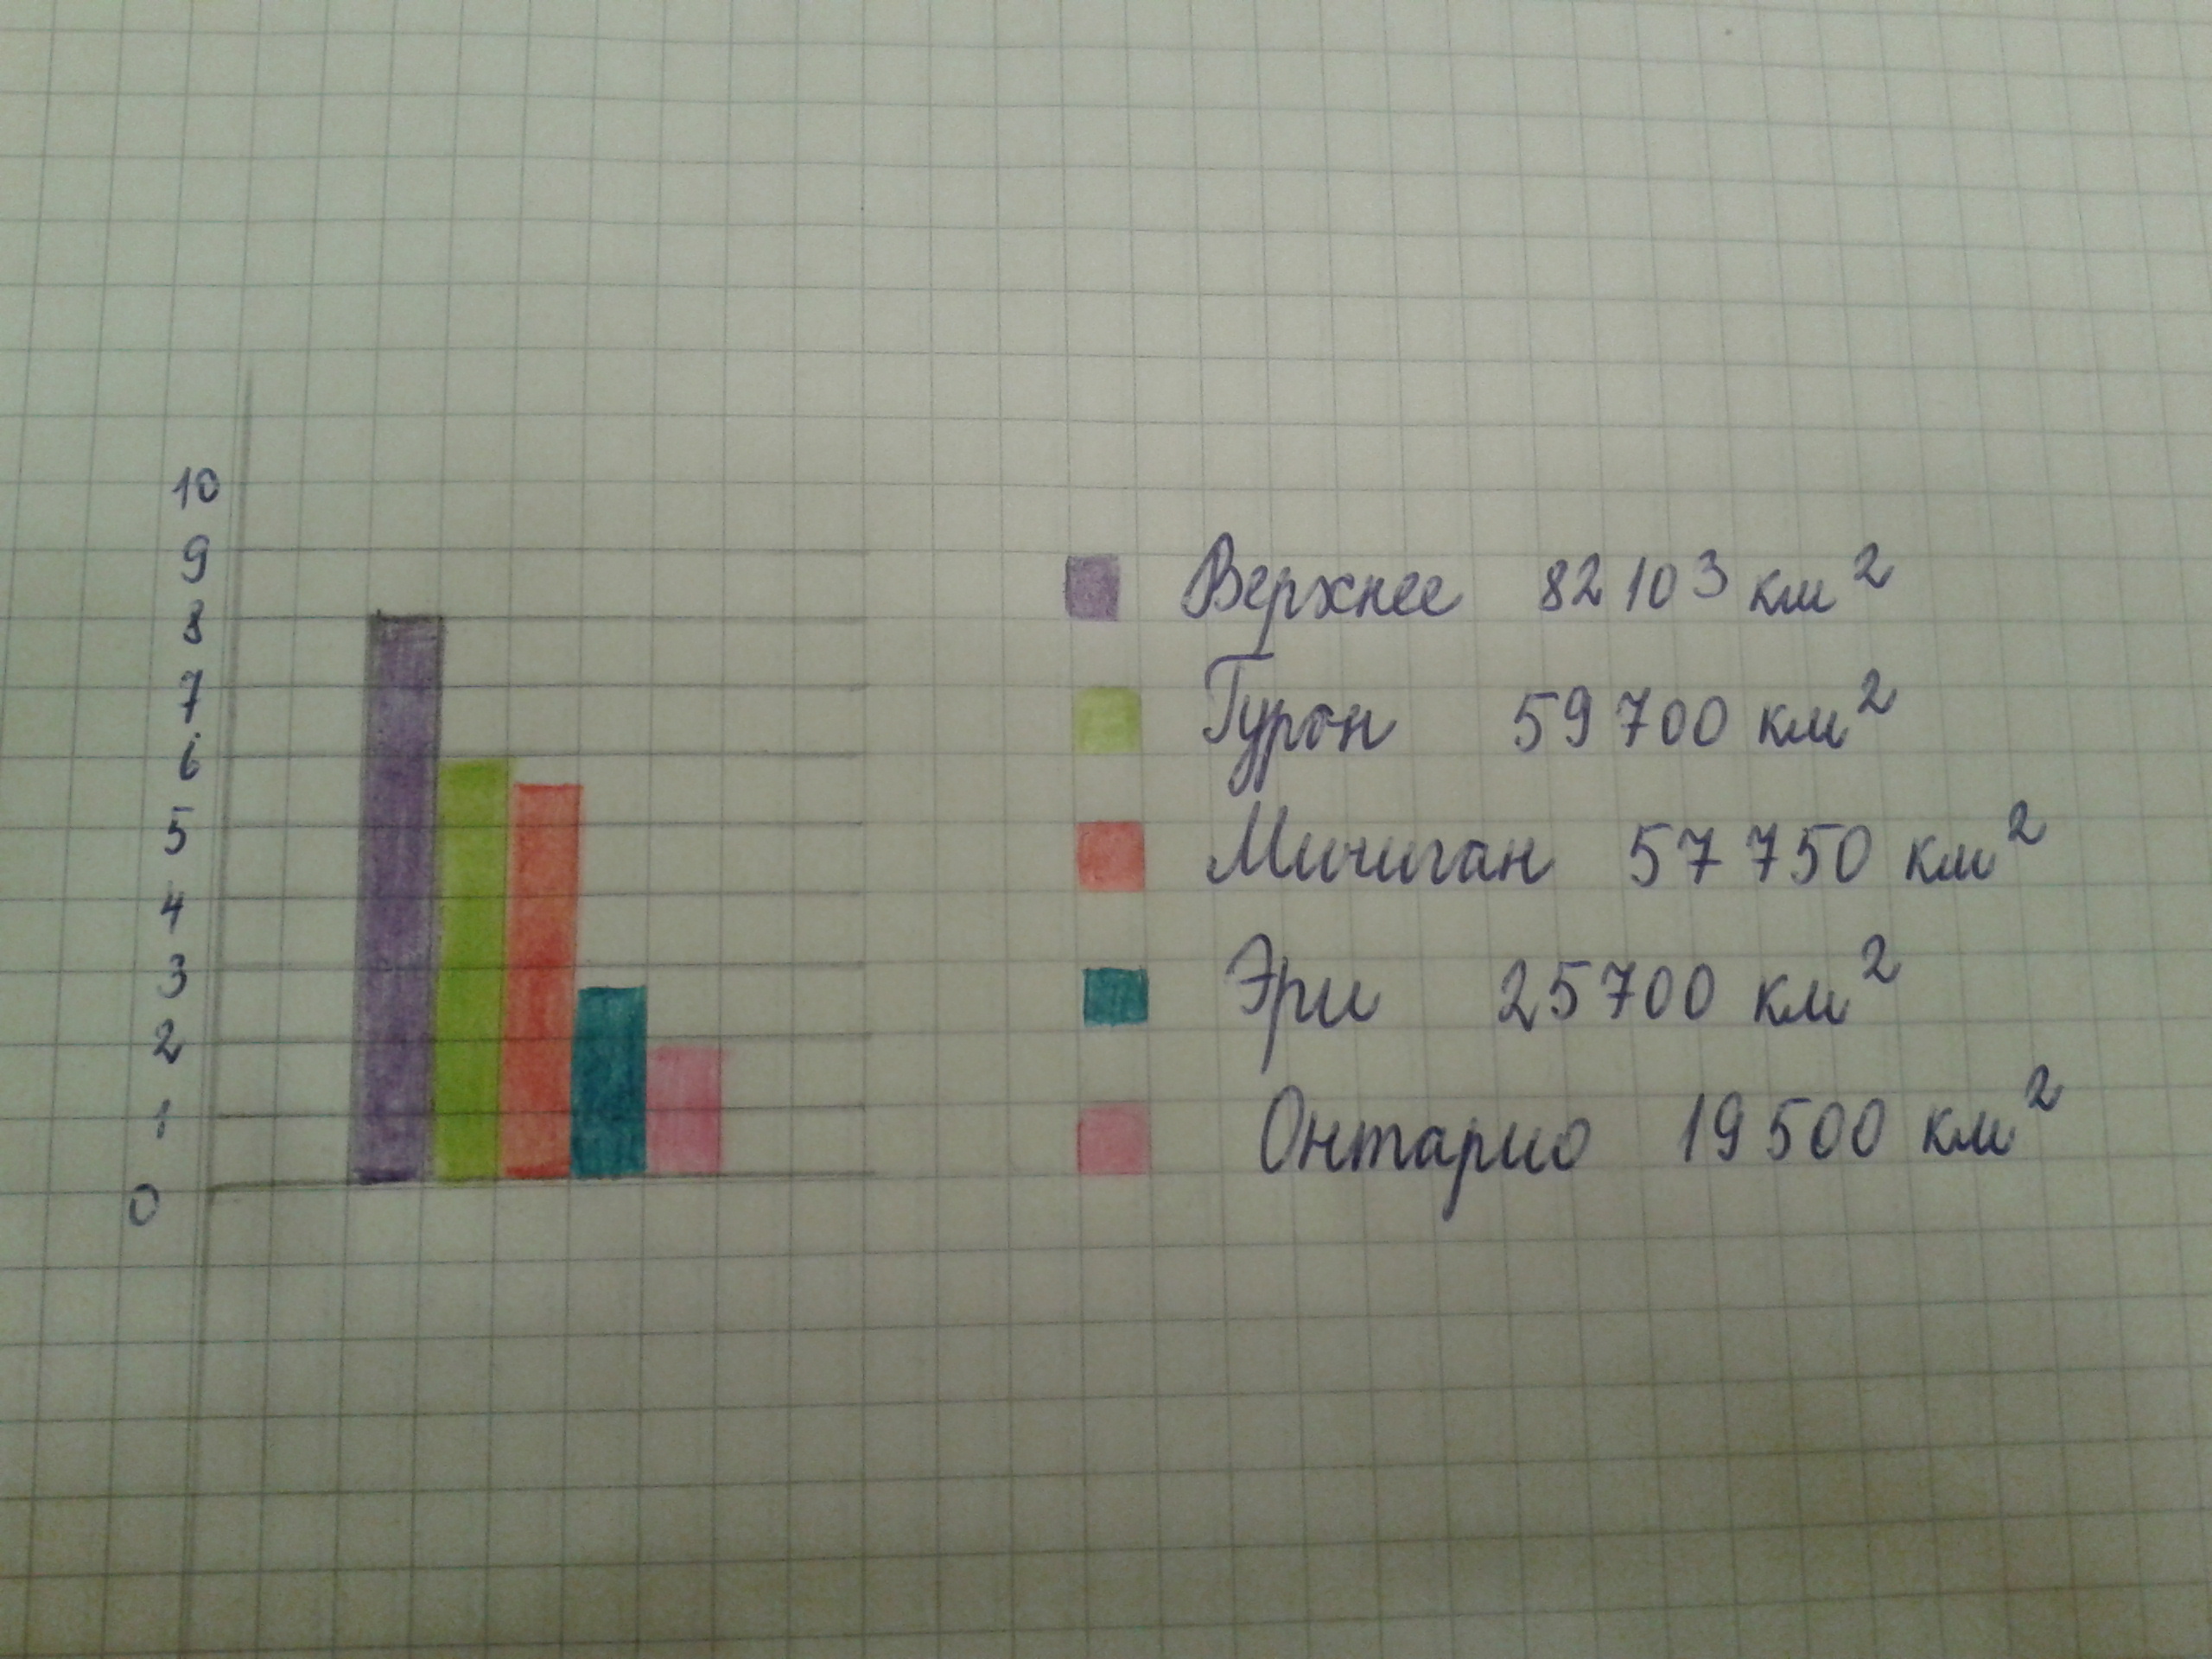 10
9
8
7
6
5
4
3
2
1
0
Верхнее 82103 км²
Гурон 59700 км²
Мичиган 57750 км²
Эри 25700 км²
Онтарио 19500 км²